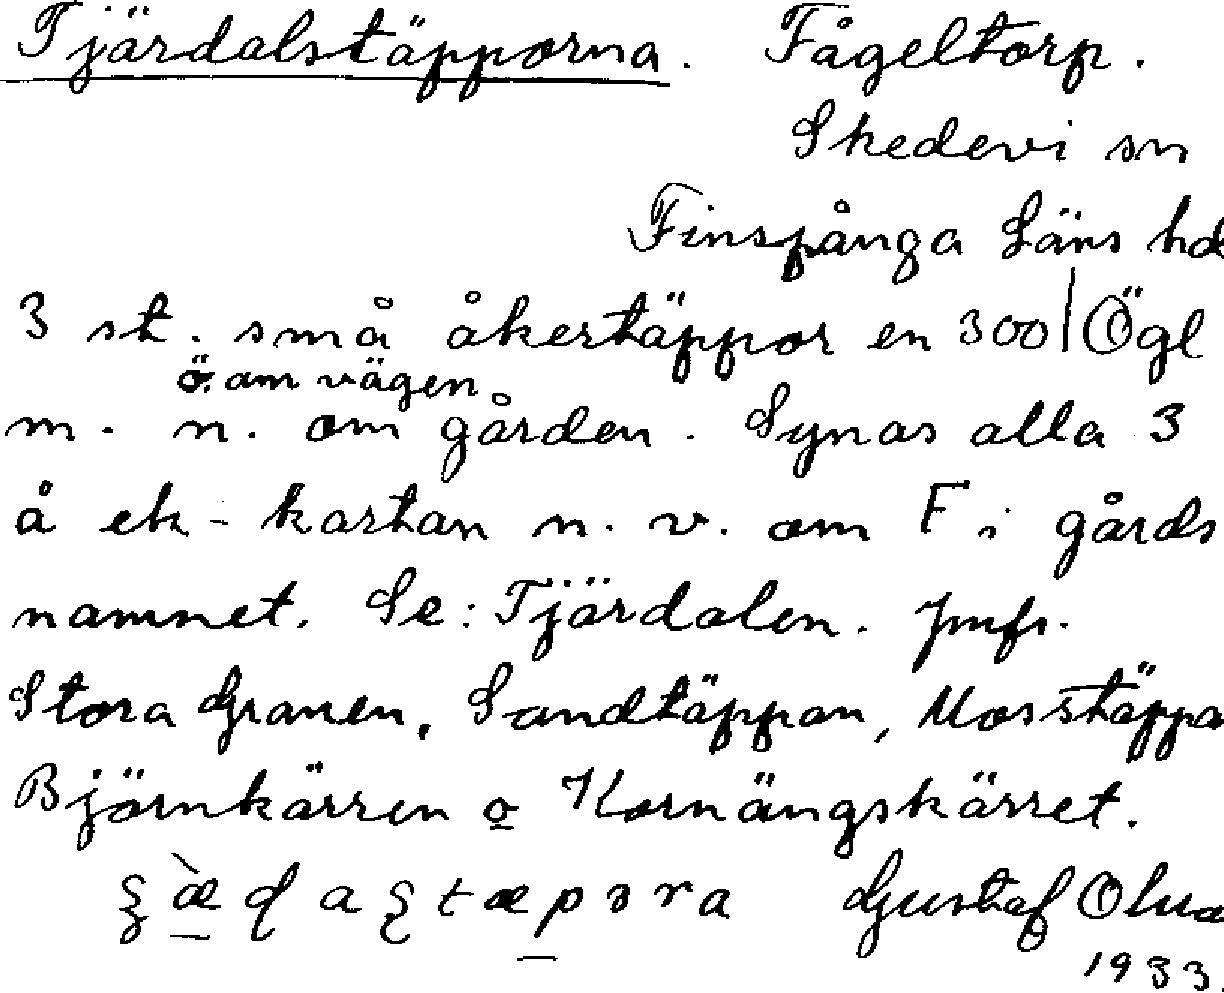 Tjärdalstäpporna. Fågeltorp.
Skedevi sn
Finspånga Läns hd
3 st. små åkertäppor en 300 | Ögl
ö. om vägen
m. n. om gården. Synas alla 3
å ek-kartan n. v. om F i gårds
namnet. Se: Tjärdalen. Jmfr.
Stora Granen, Sandtäppan, Mosstäppa
Björnkärren o Kornängskärret.
Gustaf
1933.